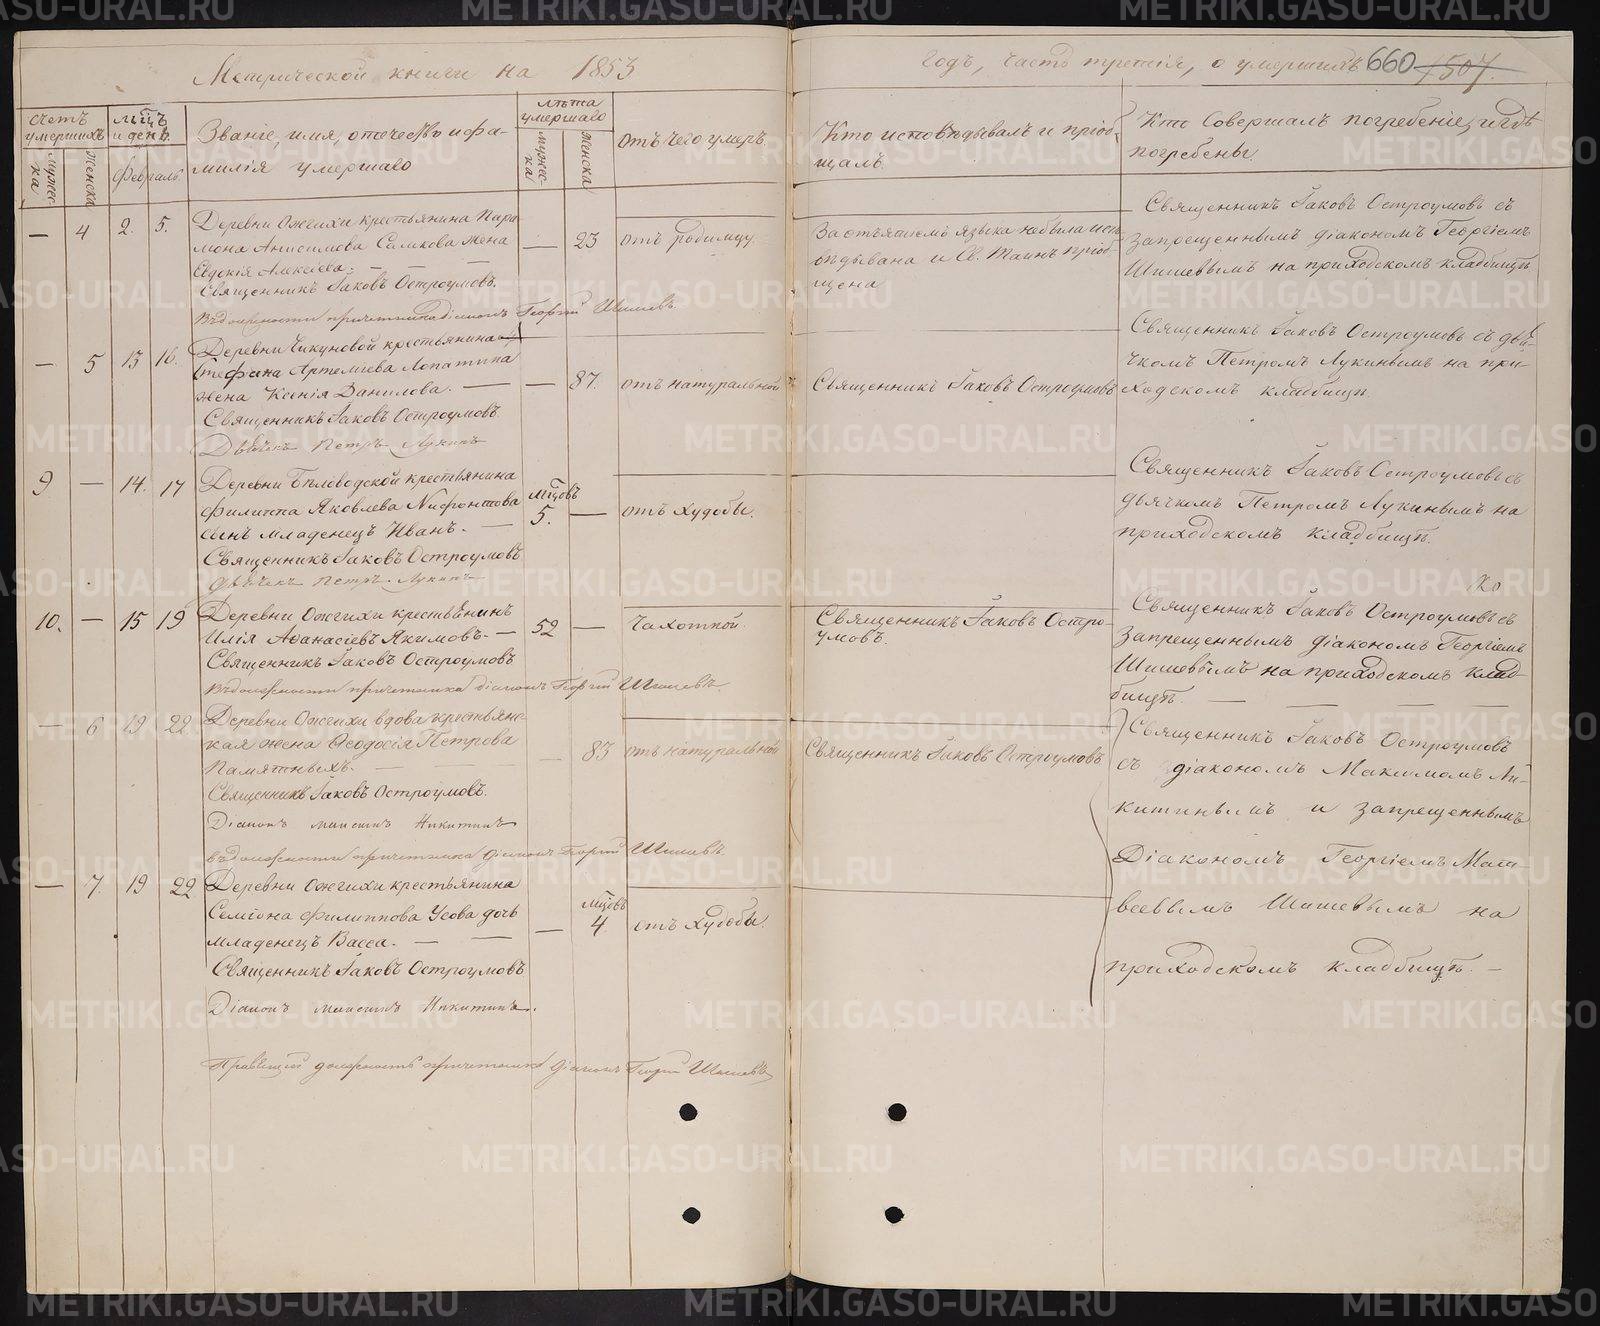 Метрической книги на 1853
годъ, часть третія, о умершихъ
660
1507.
счетъ умершихъ
мужеска
женска
мѣсяцъ и день.
Февраль.
Званіе, имя, отечество и фа-
милія умершаго
лѣта умершаго
мужеска
женска
отъ чего умеръ.
Кто исповѣдывалъ и пріоб-
щалъ.
Кто совершалъ погребеніе, и гдѣ
погребены.
— 4 2. 5.
Деревни Ожгихи крестьянина Пара-
мона Анисимова Самкова жена
Евдокія Алексіева. — —
Священникъ Іаковъ Остроумовъ.
въ должности причетника діаконъ Георгій Шишевъ.
— 23 отъ родимцу.
За отъятіемъ языка не была исп-
овѣдывана и Св. Таинъ пріоб-
щена
Священникъ Іаковъ Остроумовъ съ
запрещеннымъ діакономъ Георгіемъ
Шишевымъ на приходскомъ кладбищѣ
— 5 13 16.
Деревни Чикуновой крестьянина
Стефана Артеміева Лопатина
жена Ксенія Данилова. —
Священникъ Іаковъ Остроумовъ.
Дьячекъ Петръ Лукинъ
— 87. отъ натуральной
Священникъ Іаковъ Остроумовъ
Священникъ Іаковъ Остроумовъ съ дья-
чкомъ Петромъ Лукинымъ на при-
ходскомъ кладбищѣ.
9 — 14. 17
Деревни Бѣловодской крестьянина
Филиппа Яковлева Нифонтова
сынъ младенецъ Иванъ. —
Священникъ Іаковъ Остроумовъ
Дьячекъ Петръ Лукинъ
мѣсяцовъ
5. — отъ худобы.
Священникъ Іаковъ Остроумовъ съ
дьячкомъ Петромъ Лукинымъ на
приходскомъ кладбищѣ.
10. — 15 19
Деревни Ожгихи крестьянинъ
Илія Аѳанасіевъ Якимовъ. —
Священникъ Іаковъ Остроумовъ
въ должности причетника діаконъ Георгій Шишевъ.
52 — Чахоткой.
Священникъ Іаковъ Остро-
умовъ.
Священникъ Іаковъ Остроумовъ съ
запрещеннымъ діакономъ Георгіемъ
Шишевымъ на приходскомъ клад-
бищѣ. — — —
— 6 19 22
Деревни Ожгихи вдова крестьянс-
кая жена Ѳеодосія Петрова
Памятныхъ. — —
Священникъ Іаковъ Остроумовъ.
Діаконъ Максимъ Никитинъ
въ должности причетника діаконъ Георгій Шишевъ.
— 83 отъ натуральной
Священникъ Іаковъ Остроумовъ
Священникъ Іаковъ Остроумовъ
съ діакономъ Максимомъ Ни-
китинымъ и запрещеннымъ
Діакономъ Георгіемъ Мат-
веевымъ Шишевымъ на
приходскомъ кладбищѣ. —
— 7. 19 22
Деревни Ожгихи крестьянина
Семіона Филиппова Усова дочь
младенецъ Васса. — —
Священникъ Іаковъ Остроумовъ
Діаконъ Максимъ Никитинъ.
Правящій должность причетника Діаконъ Георгій Шишевъ
мѣсяцовъ
— 4 отъ худобы.
METRIKI.GASO-URAL.RU